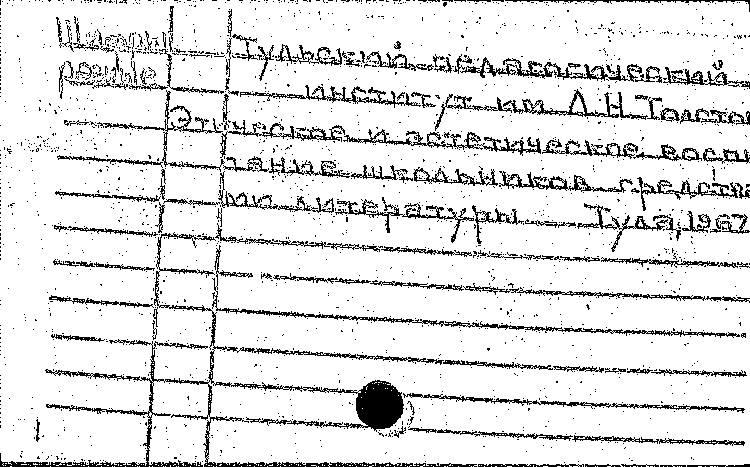 Штампы Тульский педагогический
разные институт им Л Н Толсто
Этическое и эстетическое воспи
тание школьников средства
ми литературы Тула, 1967